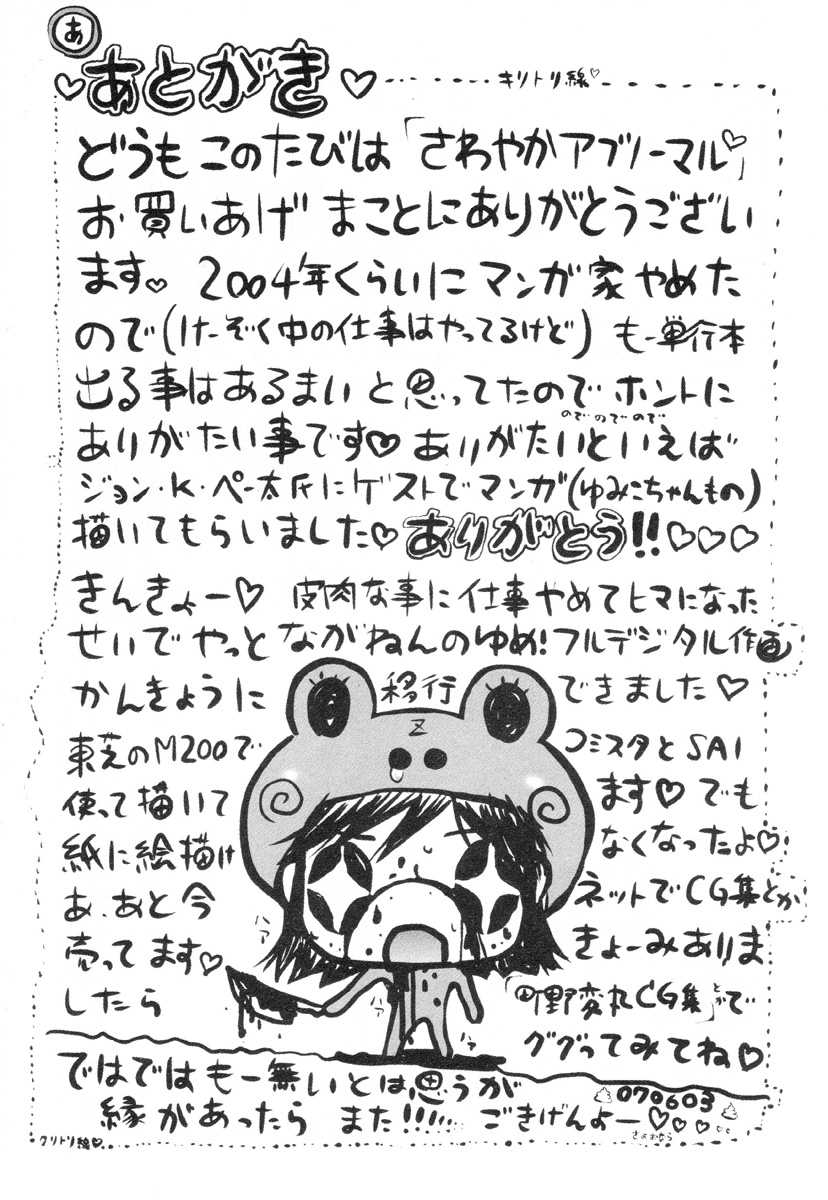 あ
あとがき
キリトリ線♡
どうも このたびは「さわやかアブノーマル♡」
お買いあげ まことにありがとうござい
ます♡ 2004年くらいに マンガ家 やめた
ので(けーぞく中の仕事はやってるけど) もー単行本
出る事はあるまい と思ってたので ホントに
のでのでので
ありがたい事です♡ ありがたいといえば
ジョン・K・ペー太氏にゲストでマンガ(ゆみこちゃんもの)
描いてもらいました♡ ありがとう!!♡♡♡
きんきょー♡ 皮肉な事に仕事やめてヒマになった
せいで やっと ながねんのゆめ!フルデジタル作画
かんきょうに 移行 できました♡
Z
東芝のM200で コミスタとSAI
使って描いて ます♡ でも
紙に絵描け なくなったよ♡
あ、あと今 ネットでCG集とか
売ってます♡ きょーみありま
したら 「町野変丸CG集」とかで
ググってみてね♡
ハァ
ハァ
ハァ
ハァ
ではでは もー無いとは思うが
縁があったら また!!!! ごきげんよー♡♡♡♡
070603
さよおなら
クリトリ線♡